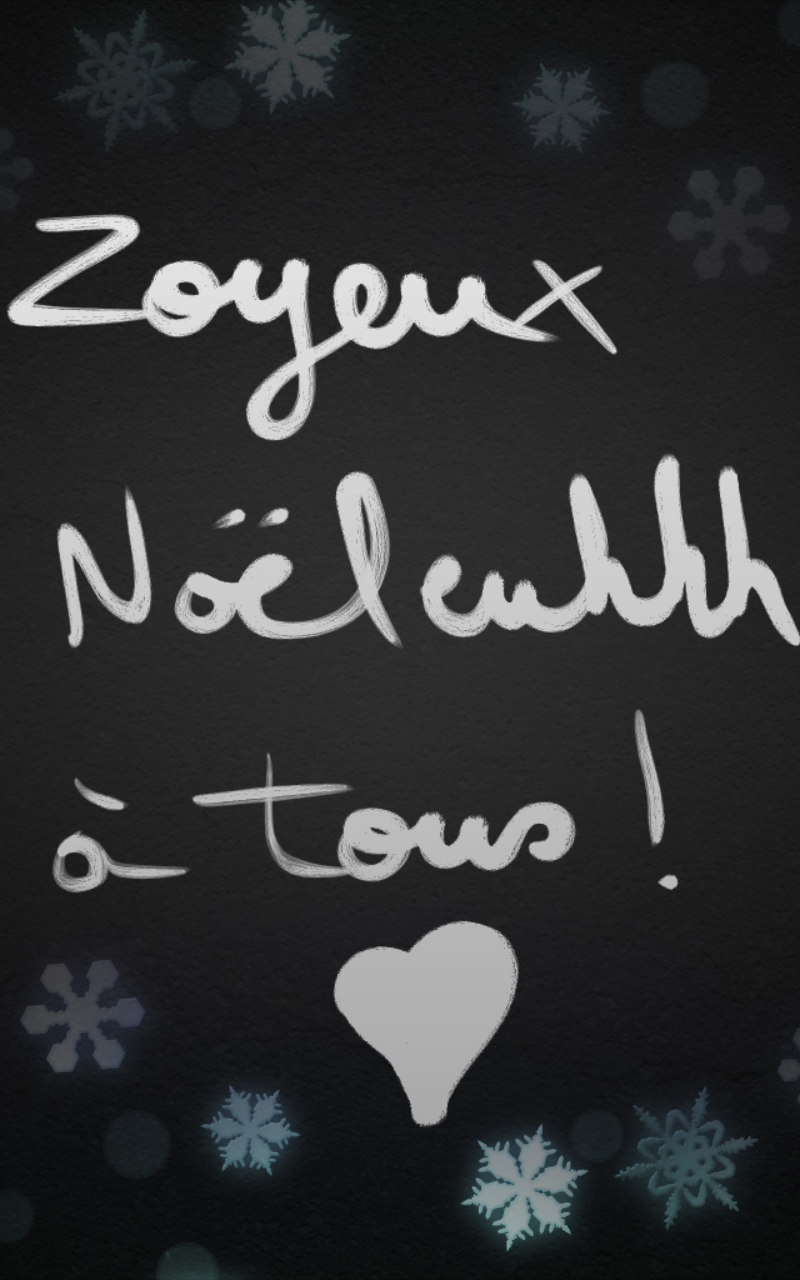 Zoyeux
Noëleuhhh
à tous !